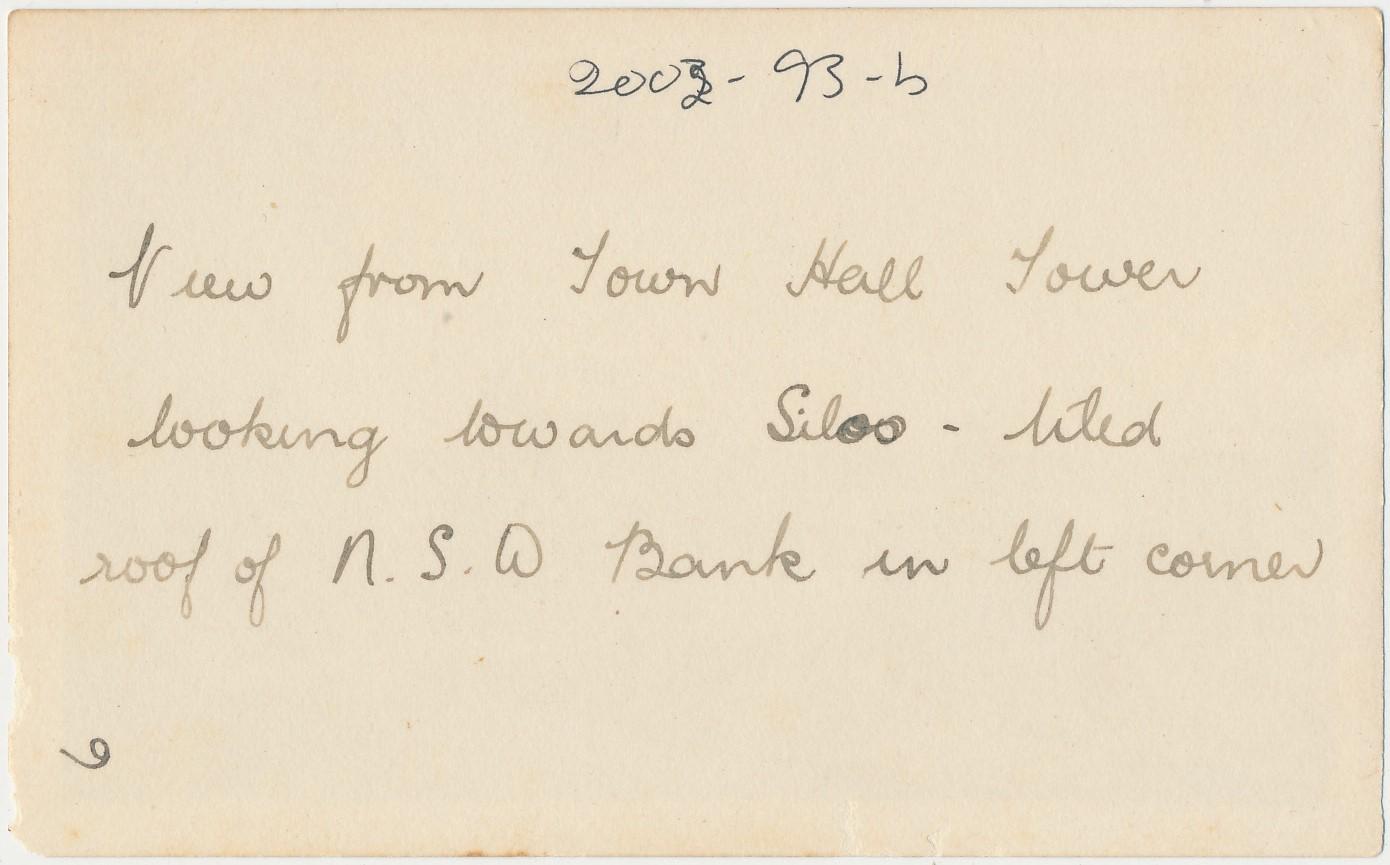 2002-93-b
View from Town Hall Tower
looking towards Silos - tiled
roof of N.S.W Bank in left corner
9